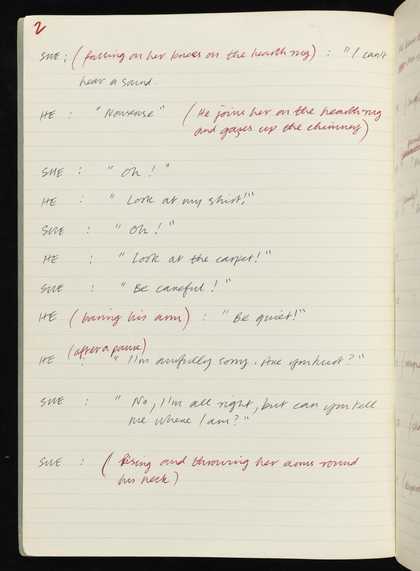 2
SHE : (falling on her knees on the hearth rug) : "I can't
hear a sound.
HE : "Nonsense" (He joins her on the hearthrug
and gazes up the chimney)
SHE : "Oh!"
HE : "Look at my shirt!"
SHE : "Oh!"
HE : "Look at the carpet!"
SHE : "Be careful!"
HE (baring his arm) : "Be quiet!"
(after a pause)
HE : "I'm awfully sorry. Are you hurt?"
SHE : "No, I'm all right, but can you tell
me where I am?"
SHE : (Rising and throwing her arms round
his neck)